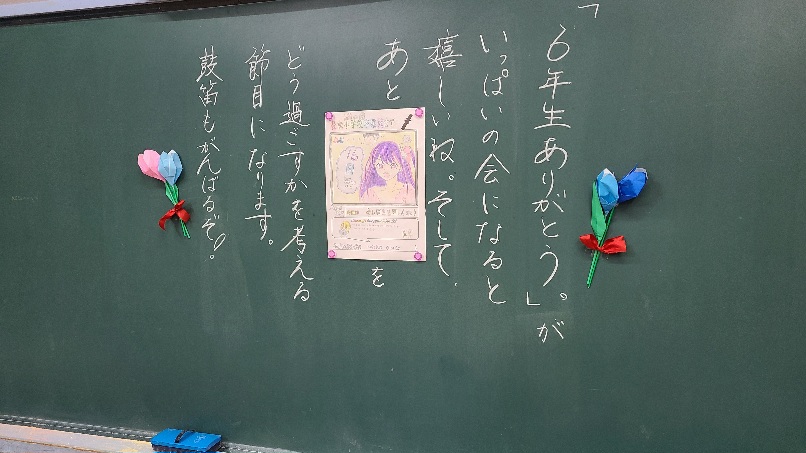 「6年生ありがとう。」が
いっぱいの会になると
嬉しいね。そして、
あと
を
どう過ごすかを考える
節目になります。
鼓笛もがんばるぞ!。